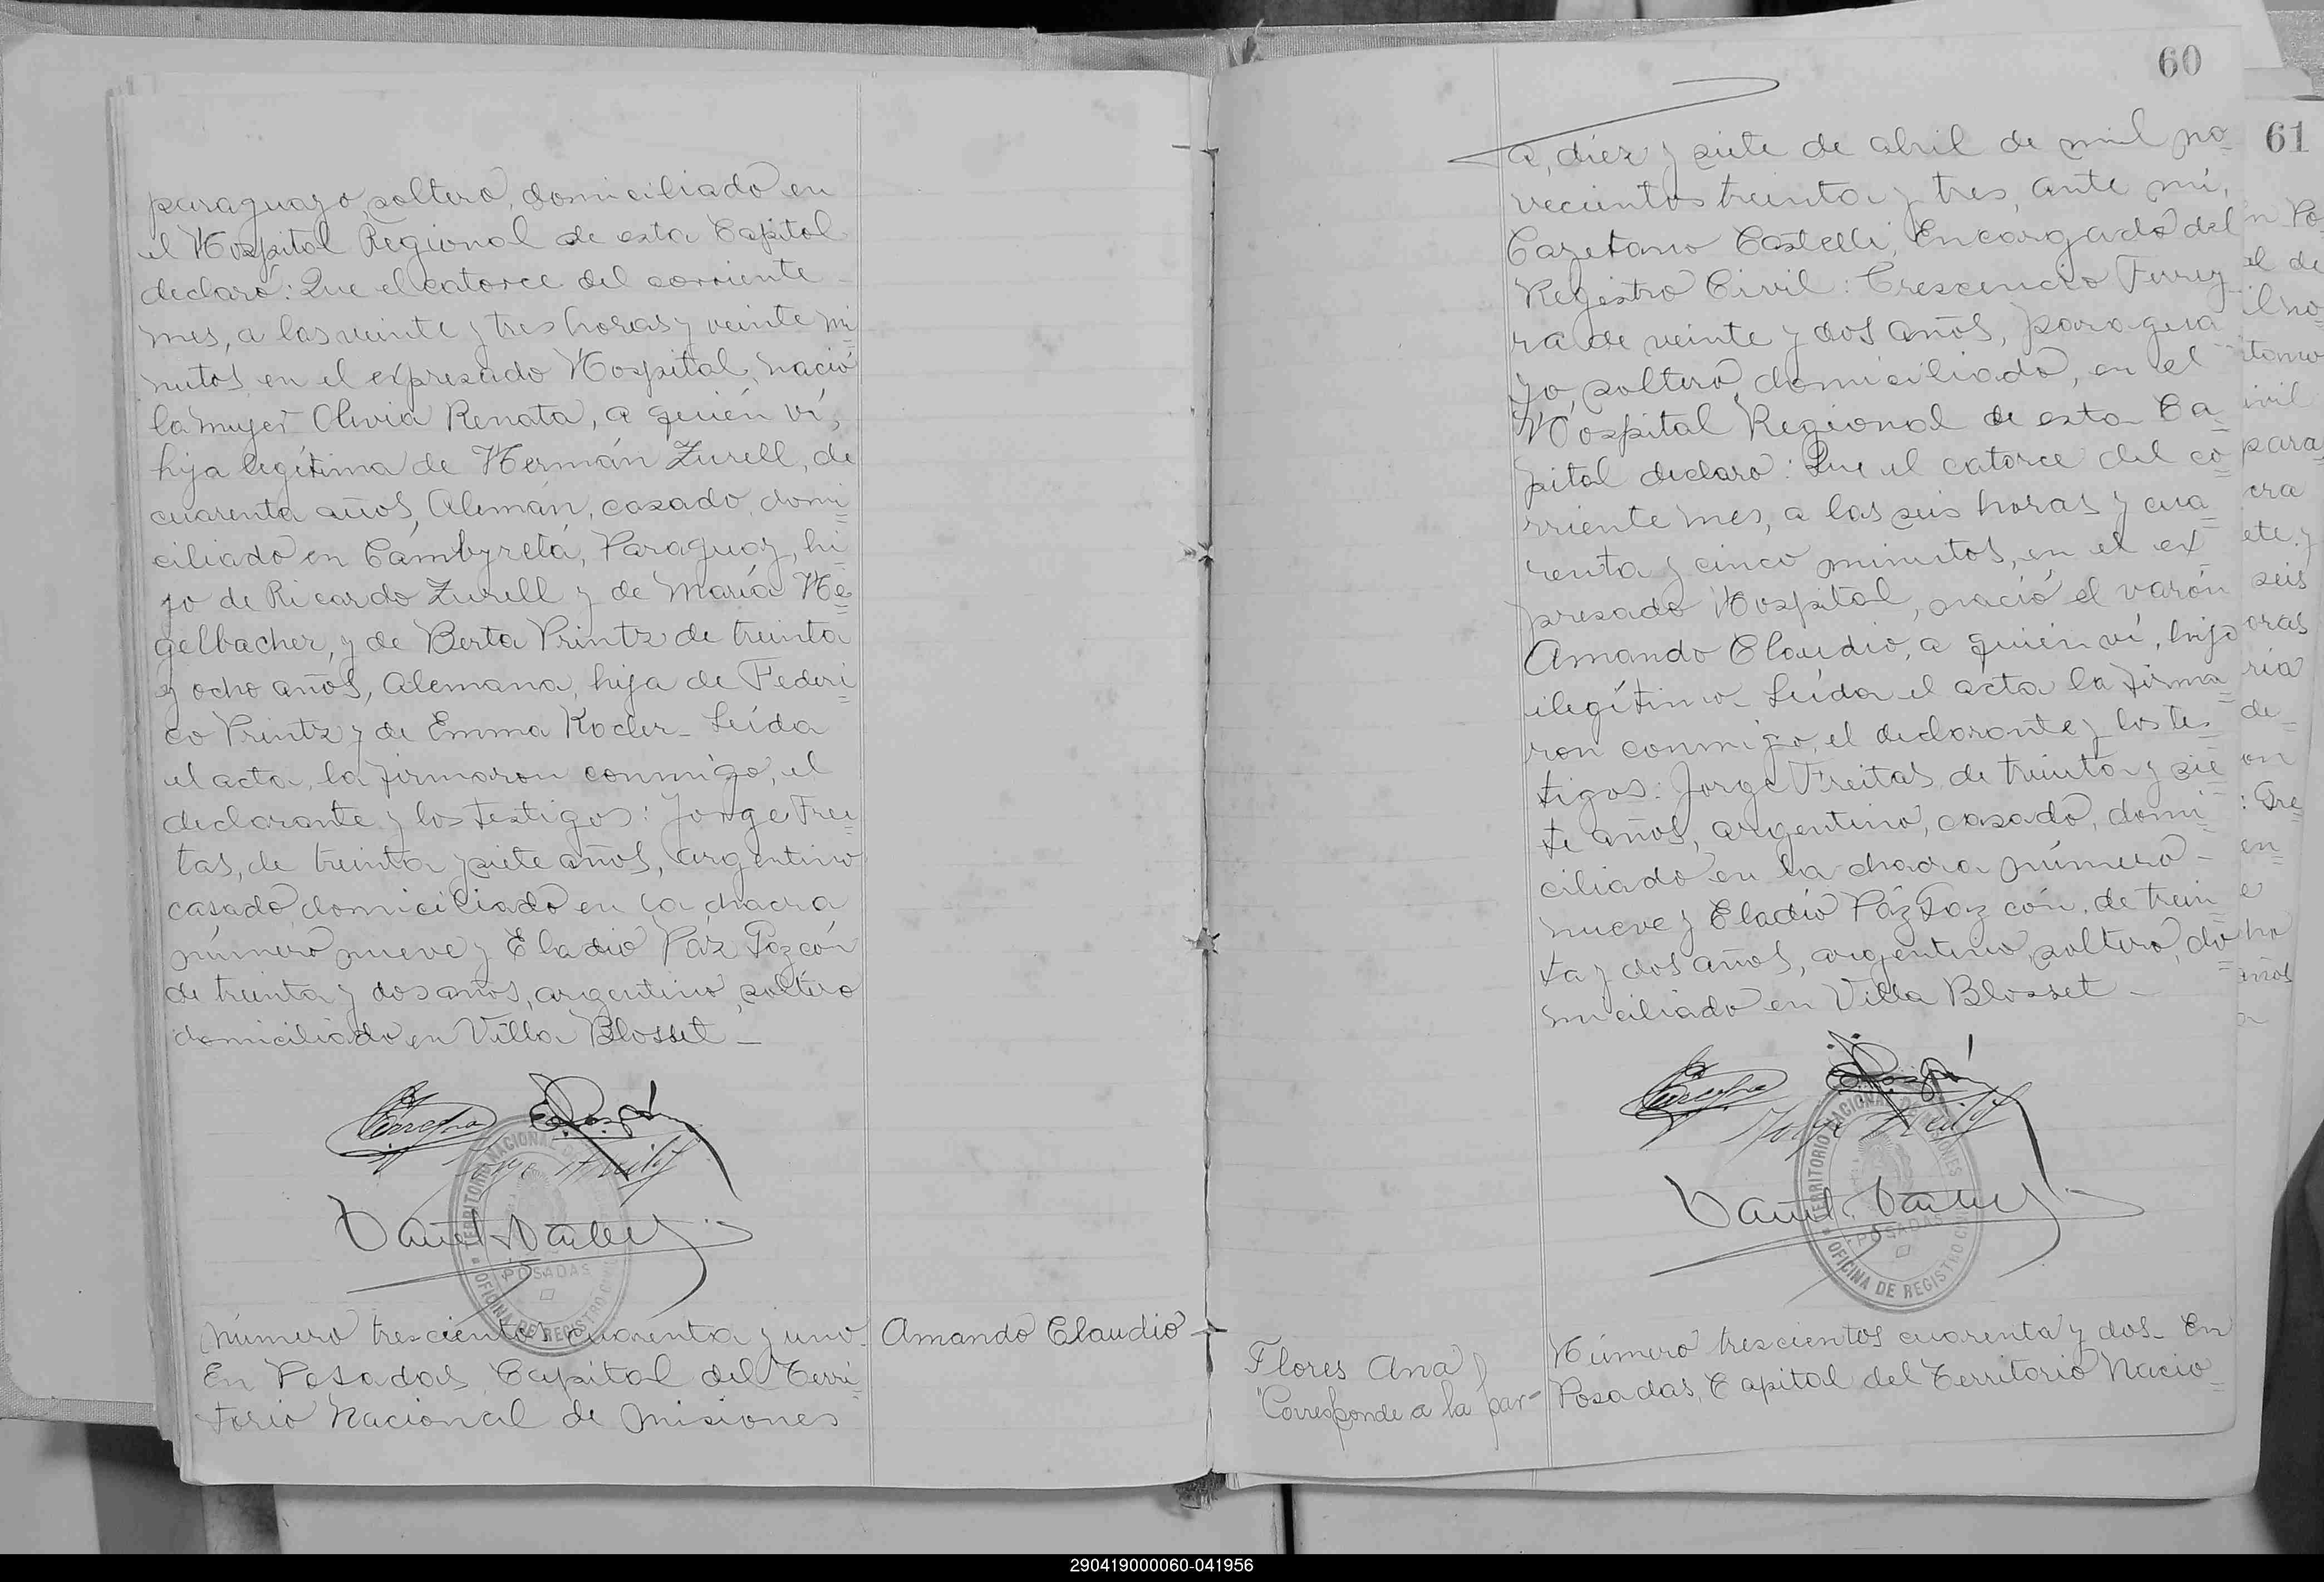 paraguayo, soltero, domiciliado en
el Hospital Regional de esta Capital
declaró: Que el catorce del corriente
mes, a las veinte y tres horas y veinte mi
nutos, en el expresado Hospital, nació
la mujer Olivia Renata, a quién ví,
hija legítima de Hermán Zurell, de
cuarenta años, Alemán, casado, domi
ciliado en Cambyretá, Paraguay, hi
jo de Ricardo Zurell y de María He
gelbacher, y de Berta Printz de treinta
y ocho años, Alemana, hija de Federi
co Printz y de Emma Kocler_ Leída
el acta, la firmaron conmigo, el
declarante y los testigos: Jorge Frei
tas, de treinta y siete años, argentino
casado domiciliado en la chacra
número nueve y Eladio Páz
de treinta y dos años, argentino, soltero
domiciliado en Villa Blosset _
TERRITORIO NACIONAL DE MISIONES
POSADAS
OFICINA DE REGISTRO CIVIL
Número trescientos cuarenta y uno.
En Posadas, Capital del Terri
torio Nacional de Misiones
Amando Claudio
60
a, diez y siete de abril de mil no
vecientos treinta y tres, ante mí,
Cayetano Castelli, Encargado del
Registro Civil: Crescencio Ferrey
ra de veinte y dos años, paragua
yo, soltero, domiciliado, en el
Hospital Regional de esta Ca
pital declaro: Que el catorce del co
rriente mes, a las seis horas y cua
renta y cinco minutos, en el ex
presado Hospital, nació el varón
Amando Claudio, a quién ví, hijo
ilegítimo_ Leída el acta la firma
ron conmigo, el declarante y los tes
tigos: Jorge Freitas, de treinta y sie
te años, argentino, casado, domi
ciliado en la chacra número
nueve y Eladio Páz de trein
ta y dos años, argentino, soltero, do
miciliado en Villa Blosset _
TERRITORIO NACIONAL DE MISIONES
POSADAS
OFICINA DE REGISTRO CIVIL
Flores Ana
"Corresponde a la par-
Número trescientos cuarenta y dos_ En
Posadas, Capital del Territorio Nacio
61
290419000060-041956